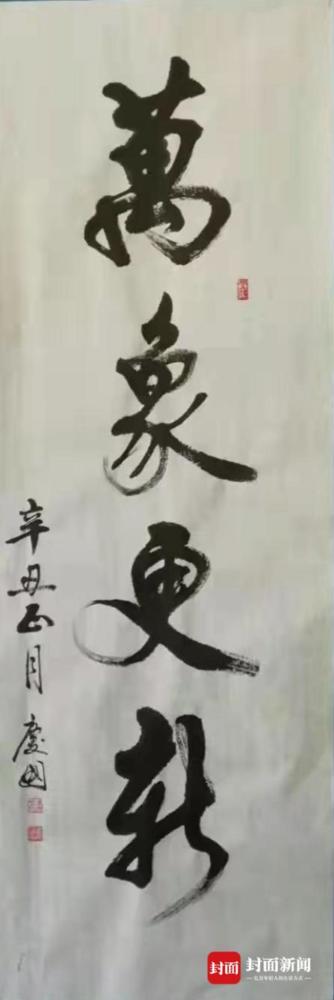 萬象更新
辛丑正月 慶國
封面 封面新闻